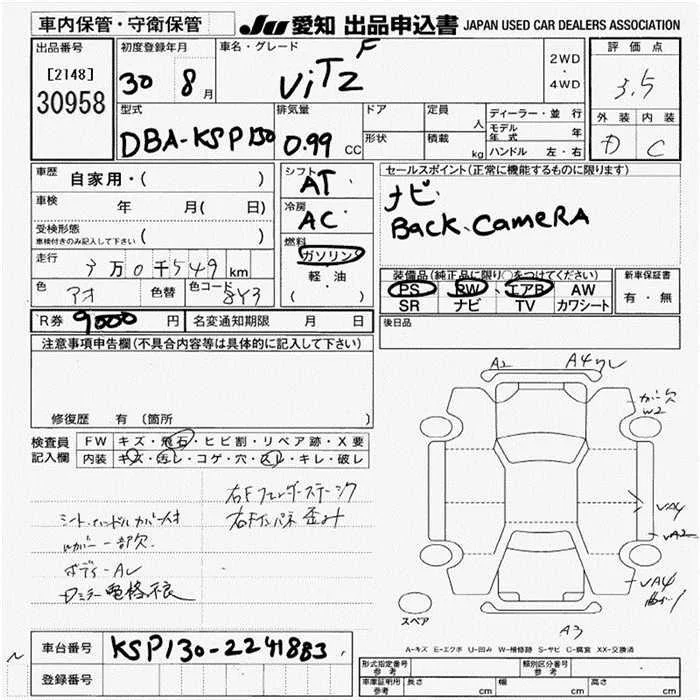 車内保管・守衛保管
JU 愛知 出品申込書 JAPAN USED CAR DEALERS ASSOCIATION
出品番号
[2148]
30958
初度登録年月
30 8 月
車名・グレード
ViTZ F
2WD
・
4WD
評価点
3.5
外装 内装
D C
型式
DBA-KSP130
排気量
0.99 CC
ドア
形状
定員 人
積載 kg
ディーラー・並 行
モデル年式 年
ハンドル 左・右
車歴
自家用・( )
車検 年 月( 日)
受検形態
車検付きのみ記入して下さい ( )
走行
3万0千549 km
色 アオ 色替 色コード 8Y3
シフト
AT
冷房
AC
燃料
ガソリン
軽・油
( )
セールスポイント(正常に機能するものに限ります)
ナビ
Back、CameRA
装備品(純正品に限り○をつけてください)
PS PW エアB AW
SR ナビ TV カワシート
新車保証書
有・無
後日品
R券 9000 円 名変通知期限 月 日
注意事項申告欄(不具合内容等は具体的に記入して下さい)
修復歴 有 〔箇所
検査員
記入欄
FW キズ・飛石・ヒビ割・リペア跡・X要
内装 キズ・汚レ・コゲ・穴・スレ・キレ・破レ
右Fフェンダーステージク
右Fインパネ歪み
シート、ハンドルカバー
カバー一部欠
ボディーAし
Dミラー電格不良
A2 A4
カバー欠
W2
VA4
VA2
VA4
A3
スペア
A-キズ E-エクボ U-凹み W-補修跡 S-サビ C-腐食 XX-交換済
車台番号 KSP130-2241883
登録番号
型式指定番号
参考
類別区分番号
参考
車庫証明用
参考
長さ cm 幅 cm 高さ cm